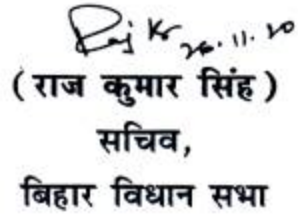 Raj Kr 26.11.20
( राज कुमार सिंह )
सचिव,
बिहार विधान सभा